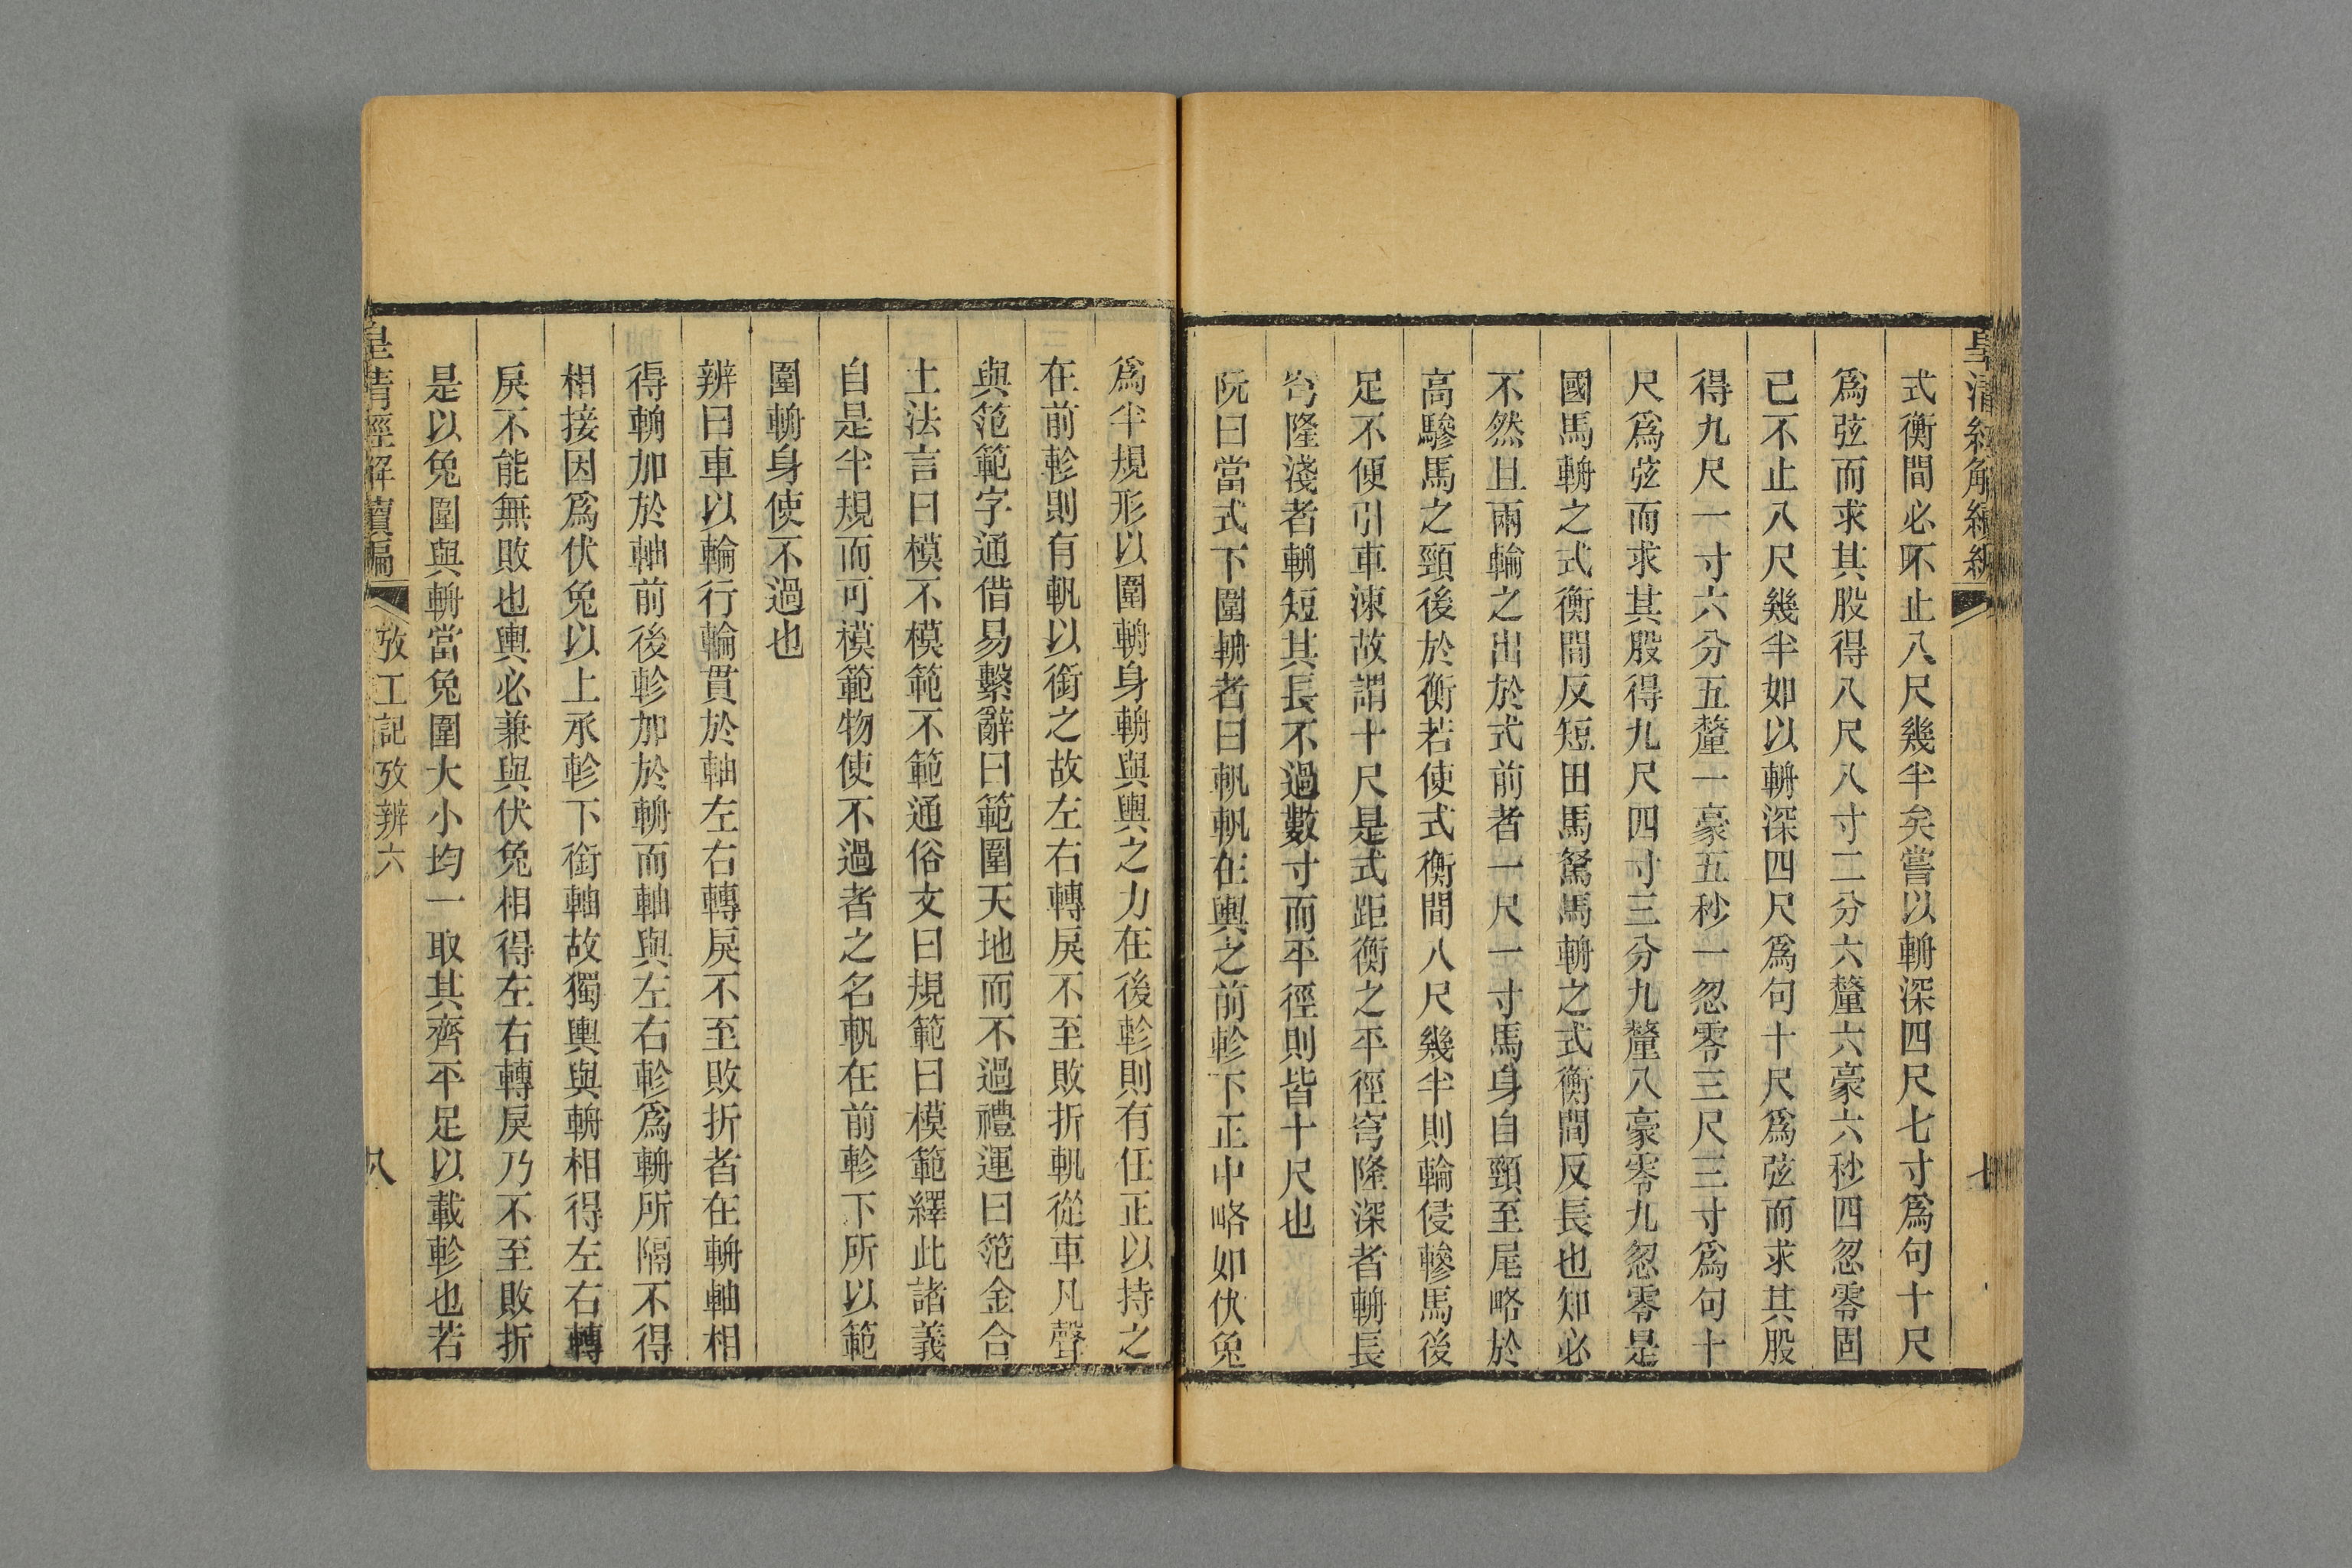 皇清經解續編
七
式衡間必不止八尺幾半矣嘗以輈深四尺七寸爲句十尺
爲弦而求其股得八尺八寸二分六釐六豪六秒四忽零固
已不止八尺幾半如以輈深四尺爲句十尺爲弦而求其股
得九尺一寸六分五釐一豪五秒一忽零三尺三寸爲句十
尺爲弦而求其股得九尺四寸三分九釐八豪零九忽零是
國馬輈之式衡間反短田馬駑馬輈之式衡間反長也知必
不然且兩輪之出於式前者一尺一寸馬身自頸至尾略於
高驂馬之頸後於衡若使式衡間八尺幾半則輪侵轖馬後
足不便引車涑故謂十尺是式距衡之平徑穹隆深者輈長
穹隆淺者輈短其長不過數寸而平徑則皆十尺也
阮曰當式下圍輈者曰軓軓在輿之前軫下正中略如伏兔
爲半規形以圍輈身輈與輿之力在後軫則有任正以持之
在前軫則有軓以銜之故左右轉戾不至敗折軓從車凡聲
與笵範字通借易繫辭曰範圍天地而不過禮運曰笵金合
土法言曰模不模範不範通俗文曰規範曰模範繹此諸義
自是半規而可模範物使不過者之名軓在前軫下所以範
圍輈身使不過也
辨曰車以輪行輪貫於軸左右轉戾不至敗折者在輈軸相
得輈加於軸前後軫加於輈而軸與左右軫爲輈所隔不得
相接因爲伏兔以上承軫下銜軸故獨輿與輈相得左右轉
戾不能無敗也輿必兼與伏兔相得左右轉戾乃不至敗折
是以兔圍與輈當兔圍大小均一取其齊平足以載軫也若
皇清經解續編
攷工記攷辨六
八